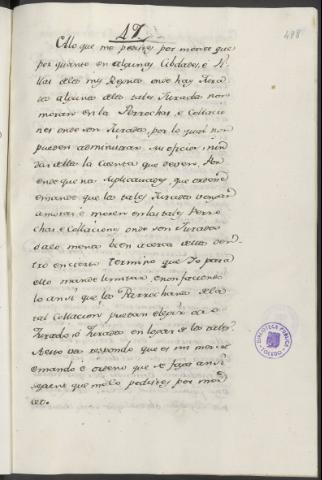 47
488
Otro que me pedistes por merced que
por quanto en algunas Cibdades, e Vi
llas delos mis Regnos onde hay Jura
dos algunos delos tales Jurados non
moran en las Perrochas, e Collacio
nes onde son Jurados, por lo qual non
pueden administrar su oficio, nin
dar della la Cuenta que deven. Por
ende que me suplicavades, que ordene
e mande que los tales Jurados vayan
a morar e moren en las tales Perro
chas e Collaciones onde son Jurados
dentro en cierto termino que Yo para
ello mande limitar, e non faciendo
lo ansi que los Parrochianos dela
tal Collacion puedan elegir otro
Jurado, o Jurados en logar de los tales.
A esto vos respondo que es mi merced
e mando e ordeno que se faga ansi
segunt que me lo pedistes por mer
ced.
BIBLIOTECA PUBLICA
TOLEDO